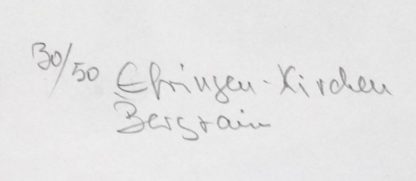 30/50 Efringen-Kirchen
Bergrain